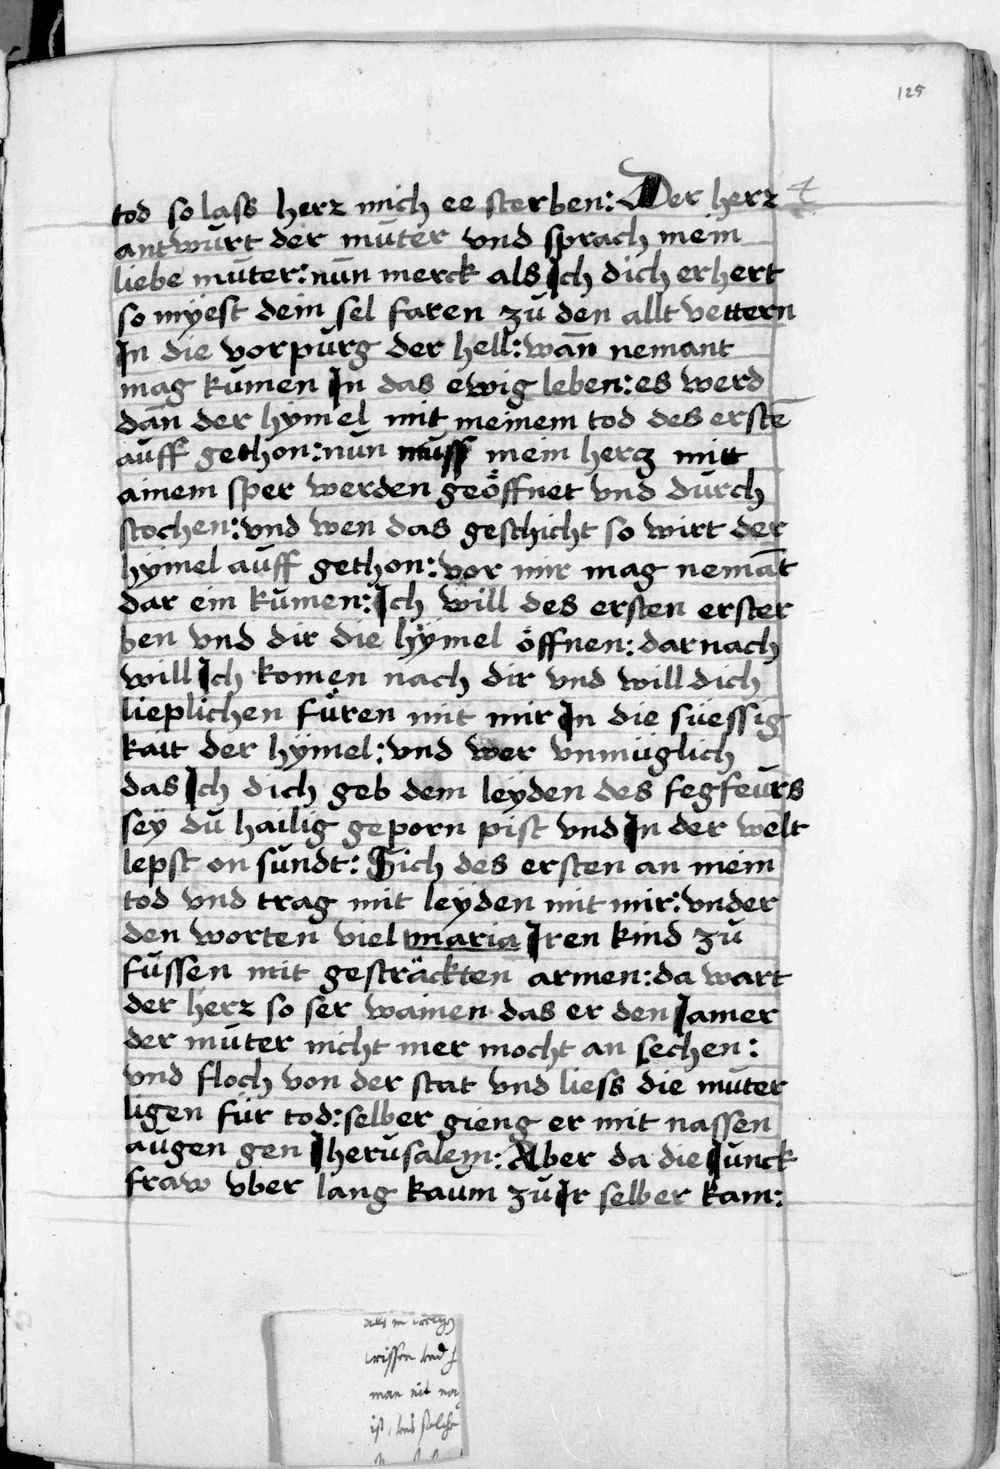 125
tod so lass herz mich ee sterben: Der herz
antwurt der muter vnd sprach mein
liebe muter: nun merck als Ich dich erhert
so myest dein sel faren zu den allt vettern
In die vorpurg der hell: wan̄ nemant
mag kumen In das ewig leben: es werd
dan̄ der hymel mit meinem tod des erstē
auff gethon: nun muss mein hercz mitt
ainem sper werden geöffnet vnd durch
stochen: vnd wen das geschicht so wirt der
hymel auff gethon: vor mir mag nemāt
dar ein kumen: Ich will des ersten erster
ben vnd dir die hymel öffnen: dar nach
will Ich komen nach dir vnd will dich
lieplichen füren mit mir In die süessig
kait der hymel: vnd wer vnmüglich
das Ich dich geb dem leyden des fegfeurs
seÿ du hailig geporn pist vnd In der welt
lepst on sundt: Sich des ersten an mein
tod vnd trag mit leyden mit mir: vnder
den worten viel maria Iren kind zu
fussen mit gesträckten armen: da wart
der herz so ser wainen das er den Iamer
der muter nicht mer mocht an sechen:
vnd floch von der stat vnd liess die muter
ligen für tod: selber gieng er mit nassen
augen gen Iherusalem: Aber da die Iunck
fraw vber lang kaum zu Ir selber kam:
wissen vnd
man nit
ist, solche